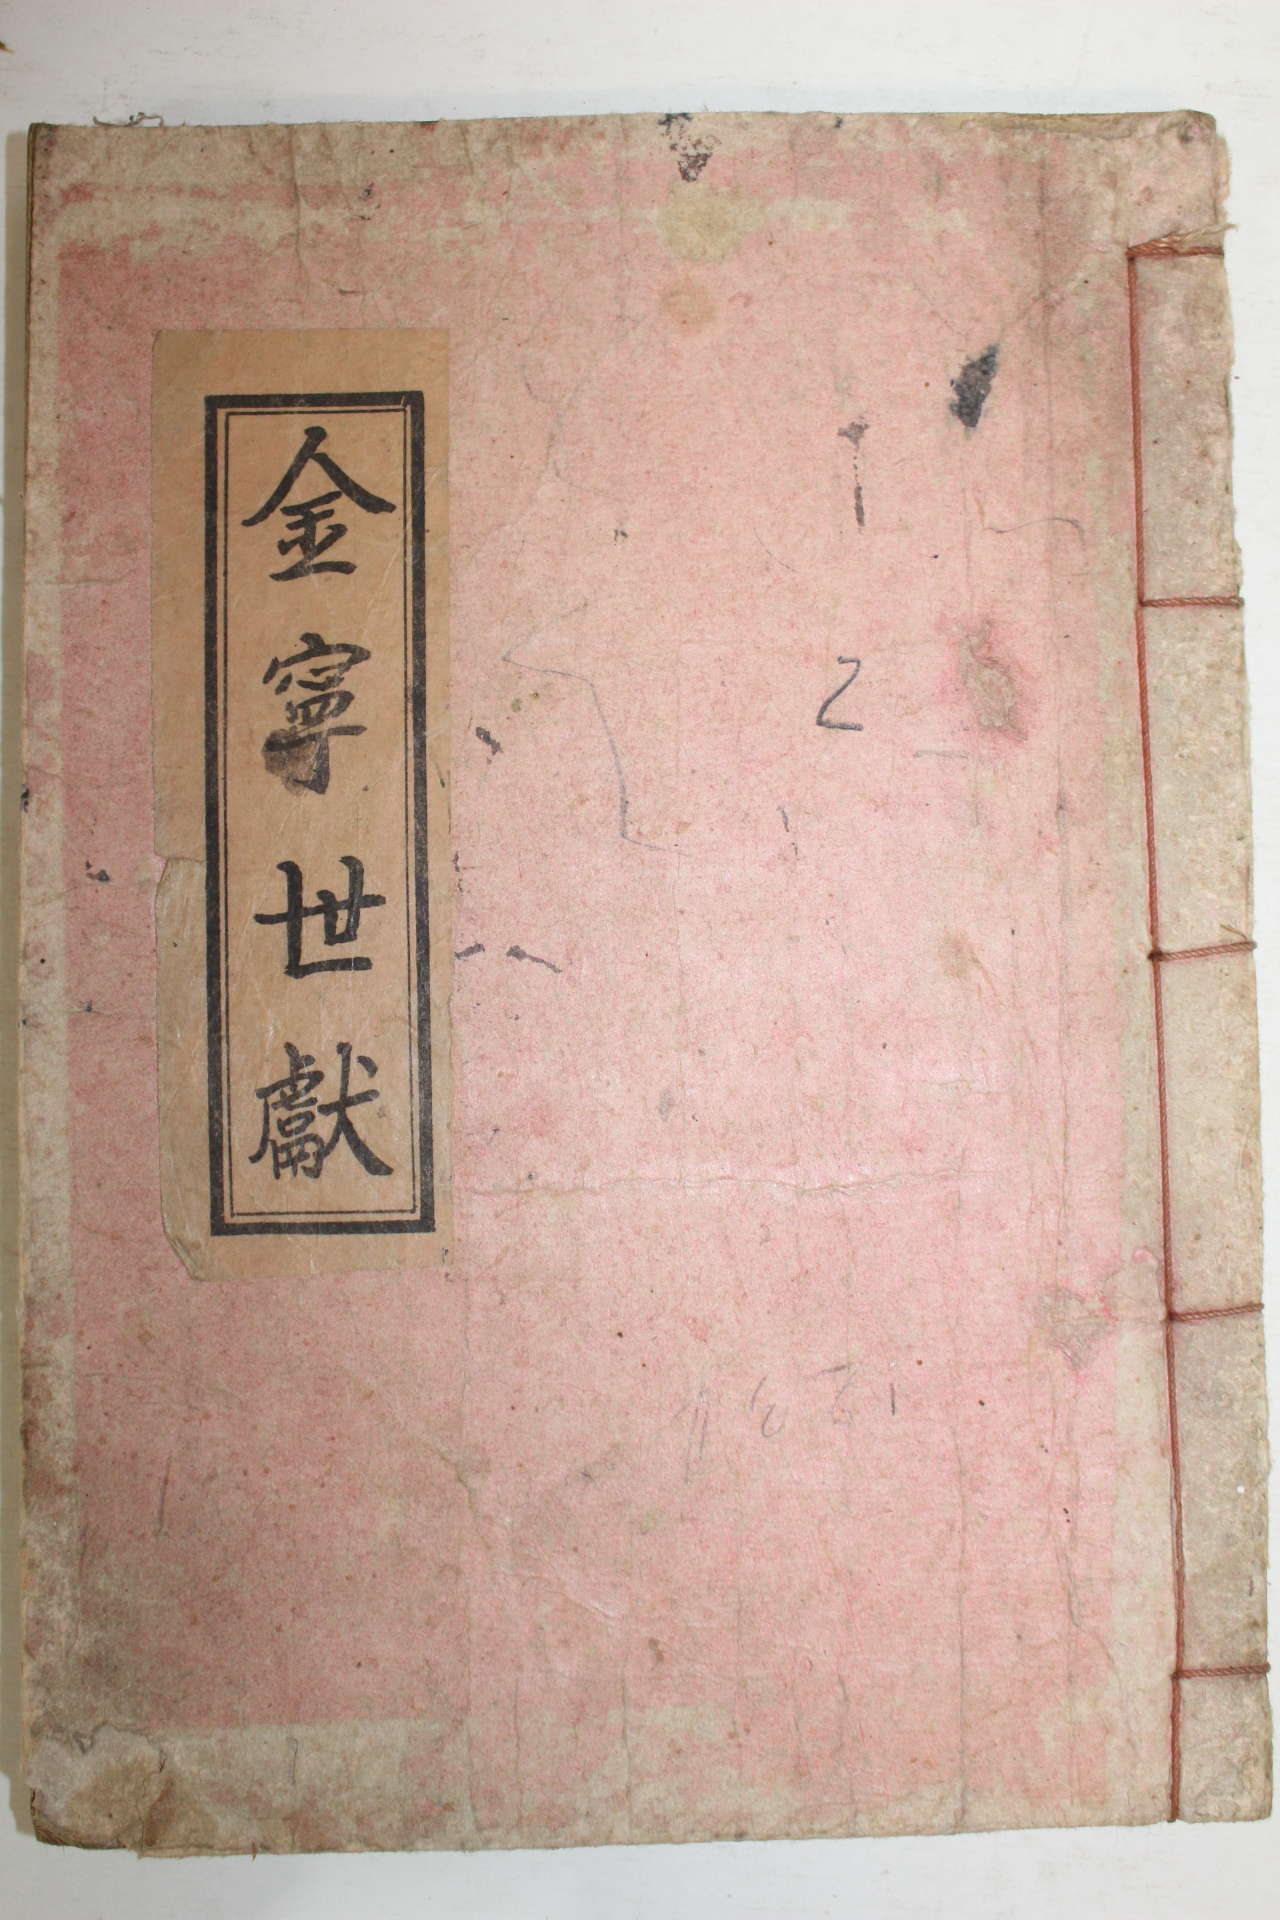 金寧世獻
2